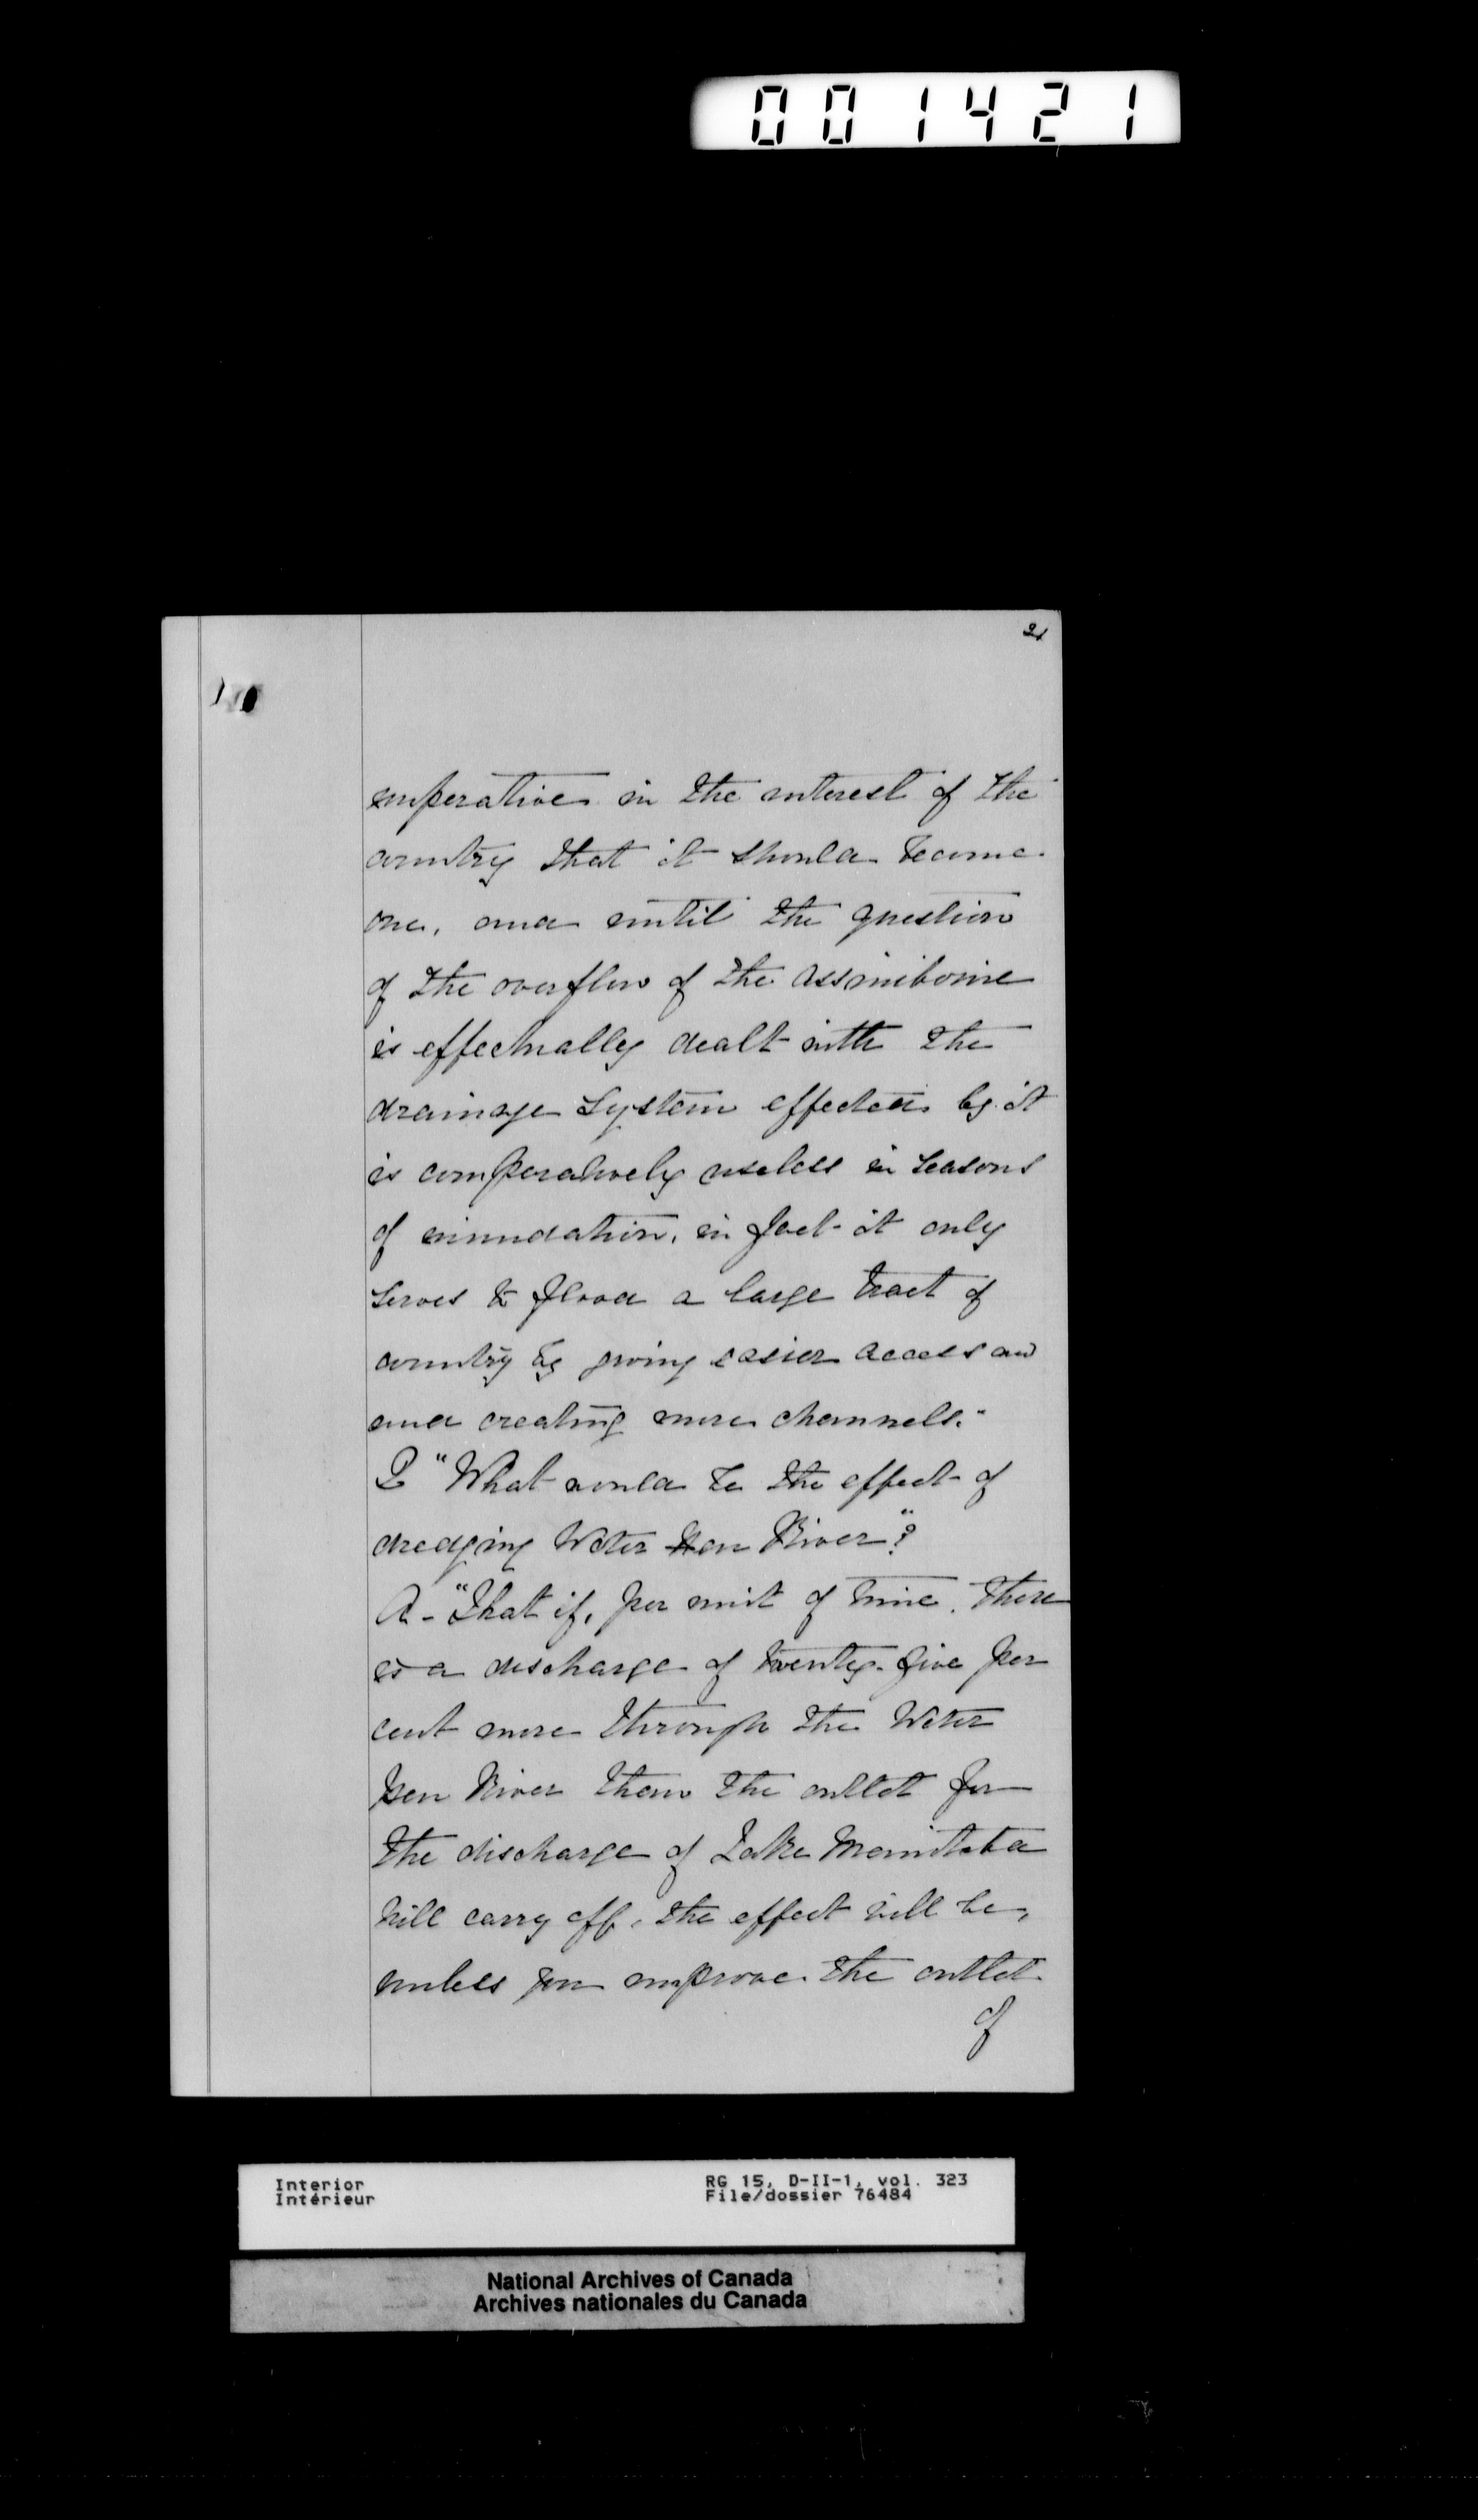 001421
21
imperative in the interest of the
country that it should become
one, and until the question
of the overflow of the Assiniboine
is effectually dealt with the
drainage system effected by it
is comparatively useless in seasons
of inundation, in fact it only
serves to flood a large tract of
country by giving easier access and
and creating more channels."
Q "What would be the effect of
dredging Water Hen River"?
A - "That if, per unit of time, there
is a discharge of twenty-five per
cent more through the Water
Hen River than the outlet for
the discharge of Lake Manitoba
will carry off, the effect will be,
unless you improve the outlet
of
Interior
Intérieur
RG 15, D-II-1, vol. 323
File/dossier 76484
National Archives of Canada
Archives nationales du Canada